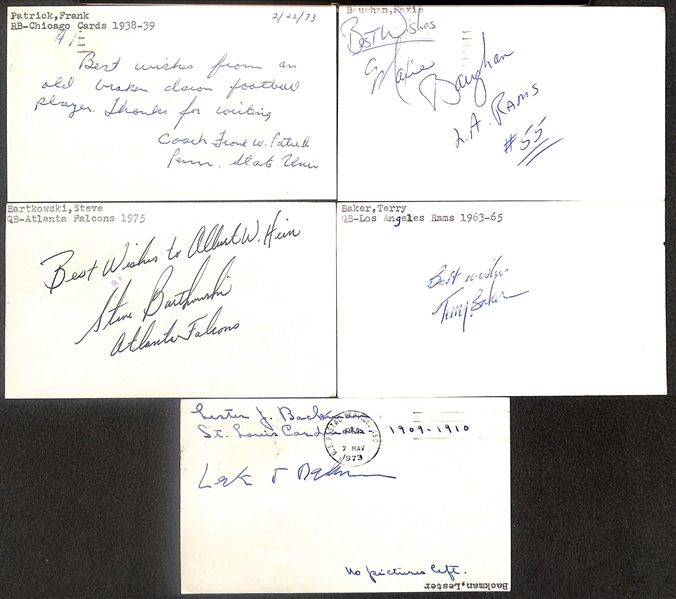 Patrick,Frank
RB-Chicago Cards 1938-39
2/22/73
Best wishes from an
old broken down football
player. Thanks for writing
Coach Frank W. Patrick
Penn. State Univ
Baughan,Maxie
Best Wishes
Maxie
Baughan
L.A. RAMS
#55
Bartkowski,Steve
QB-Atlanta Falcons 1975
Best Wishes to Albert W. Hein
Steve Bartkowski
Atlanta Falcons
Baker,Terry
QB-Los Angeles Rams 1963-65
Best wishes
Terry Baker
Lester J. Backman
St. Louis Cardinals 1909-1910
U.S. POSTAL SERVICE
7 MAY
1973
No pictures left.
Backman,Lester